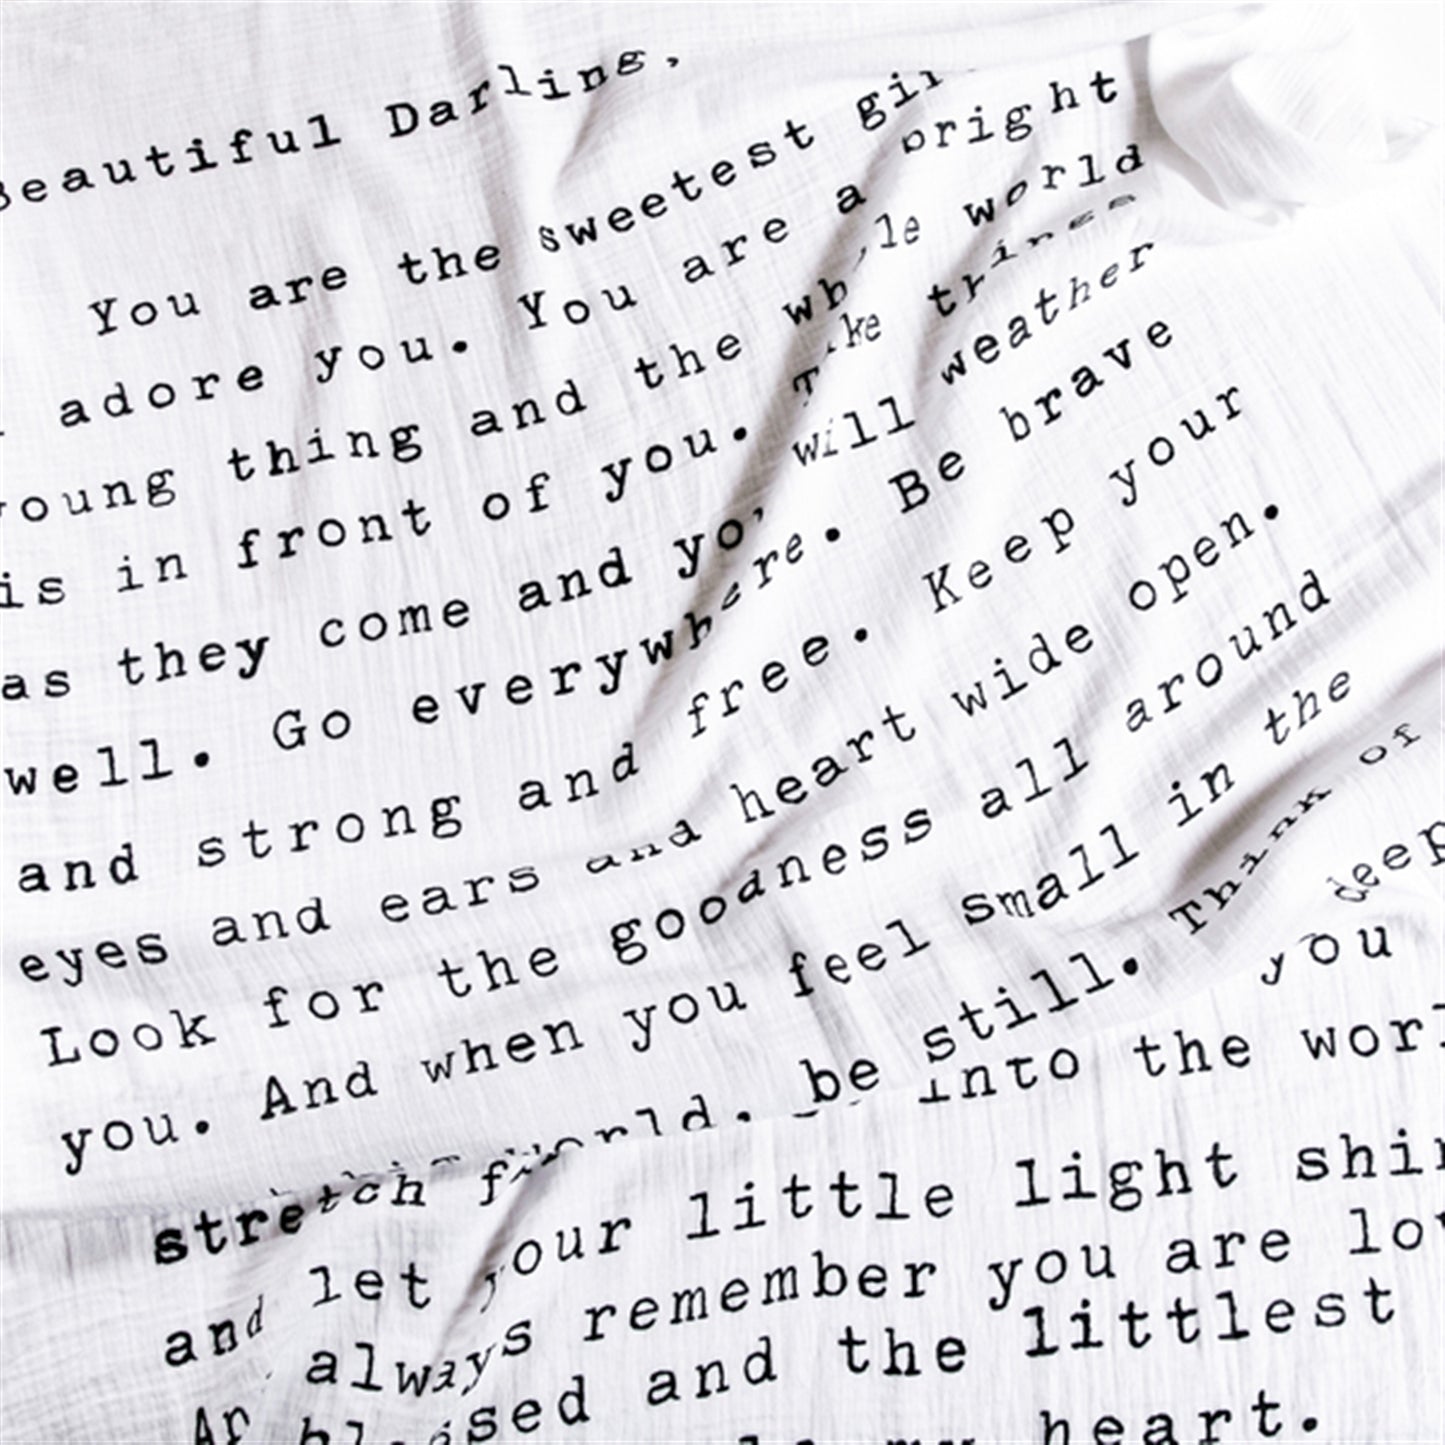 Beautiful Darling,
You are the sweetest girl
adore you. You are a bright
young thing and the whole world
is in front of you. Take things
as they come and you will weather
well. Go everywhere. Be brave
and strong and free. Keep your
eyes and ears and heart wide open.
Look for the goodness all around
you. And when you feel small in the
world. be still. Think of
deep
you
stretch into the world
and let your little light shine
always remember you are
and the littlest
my heart.